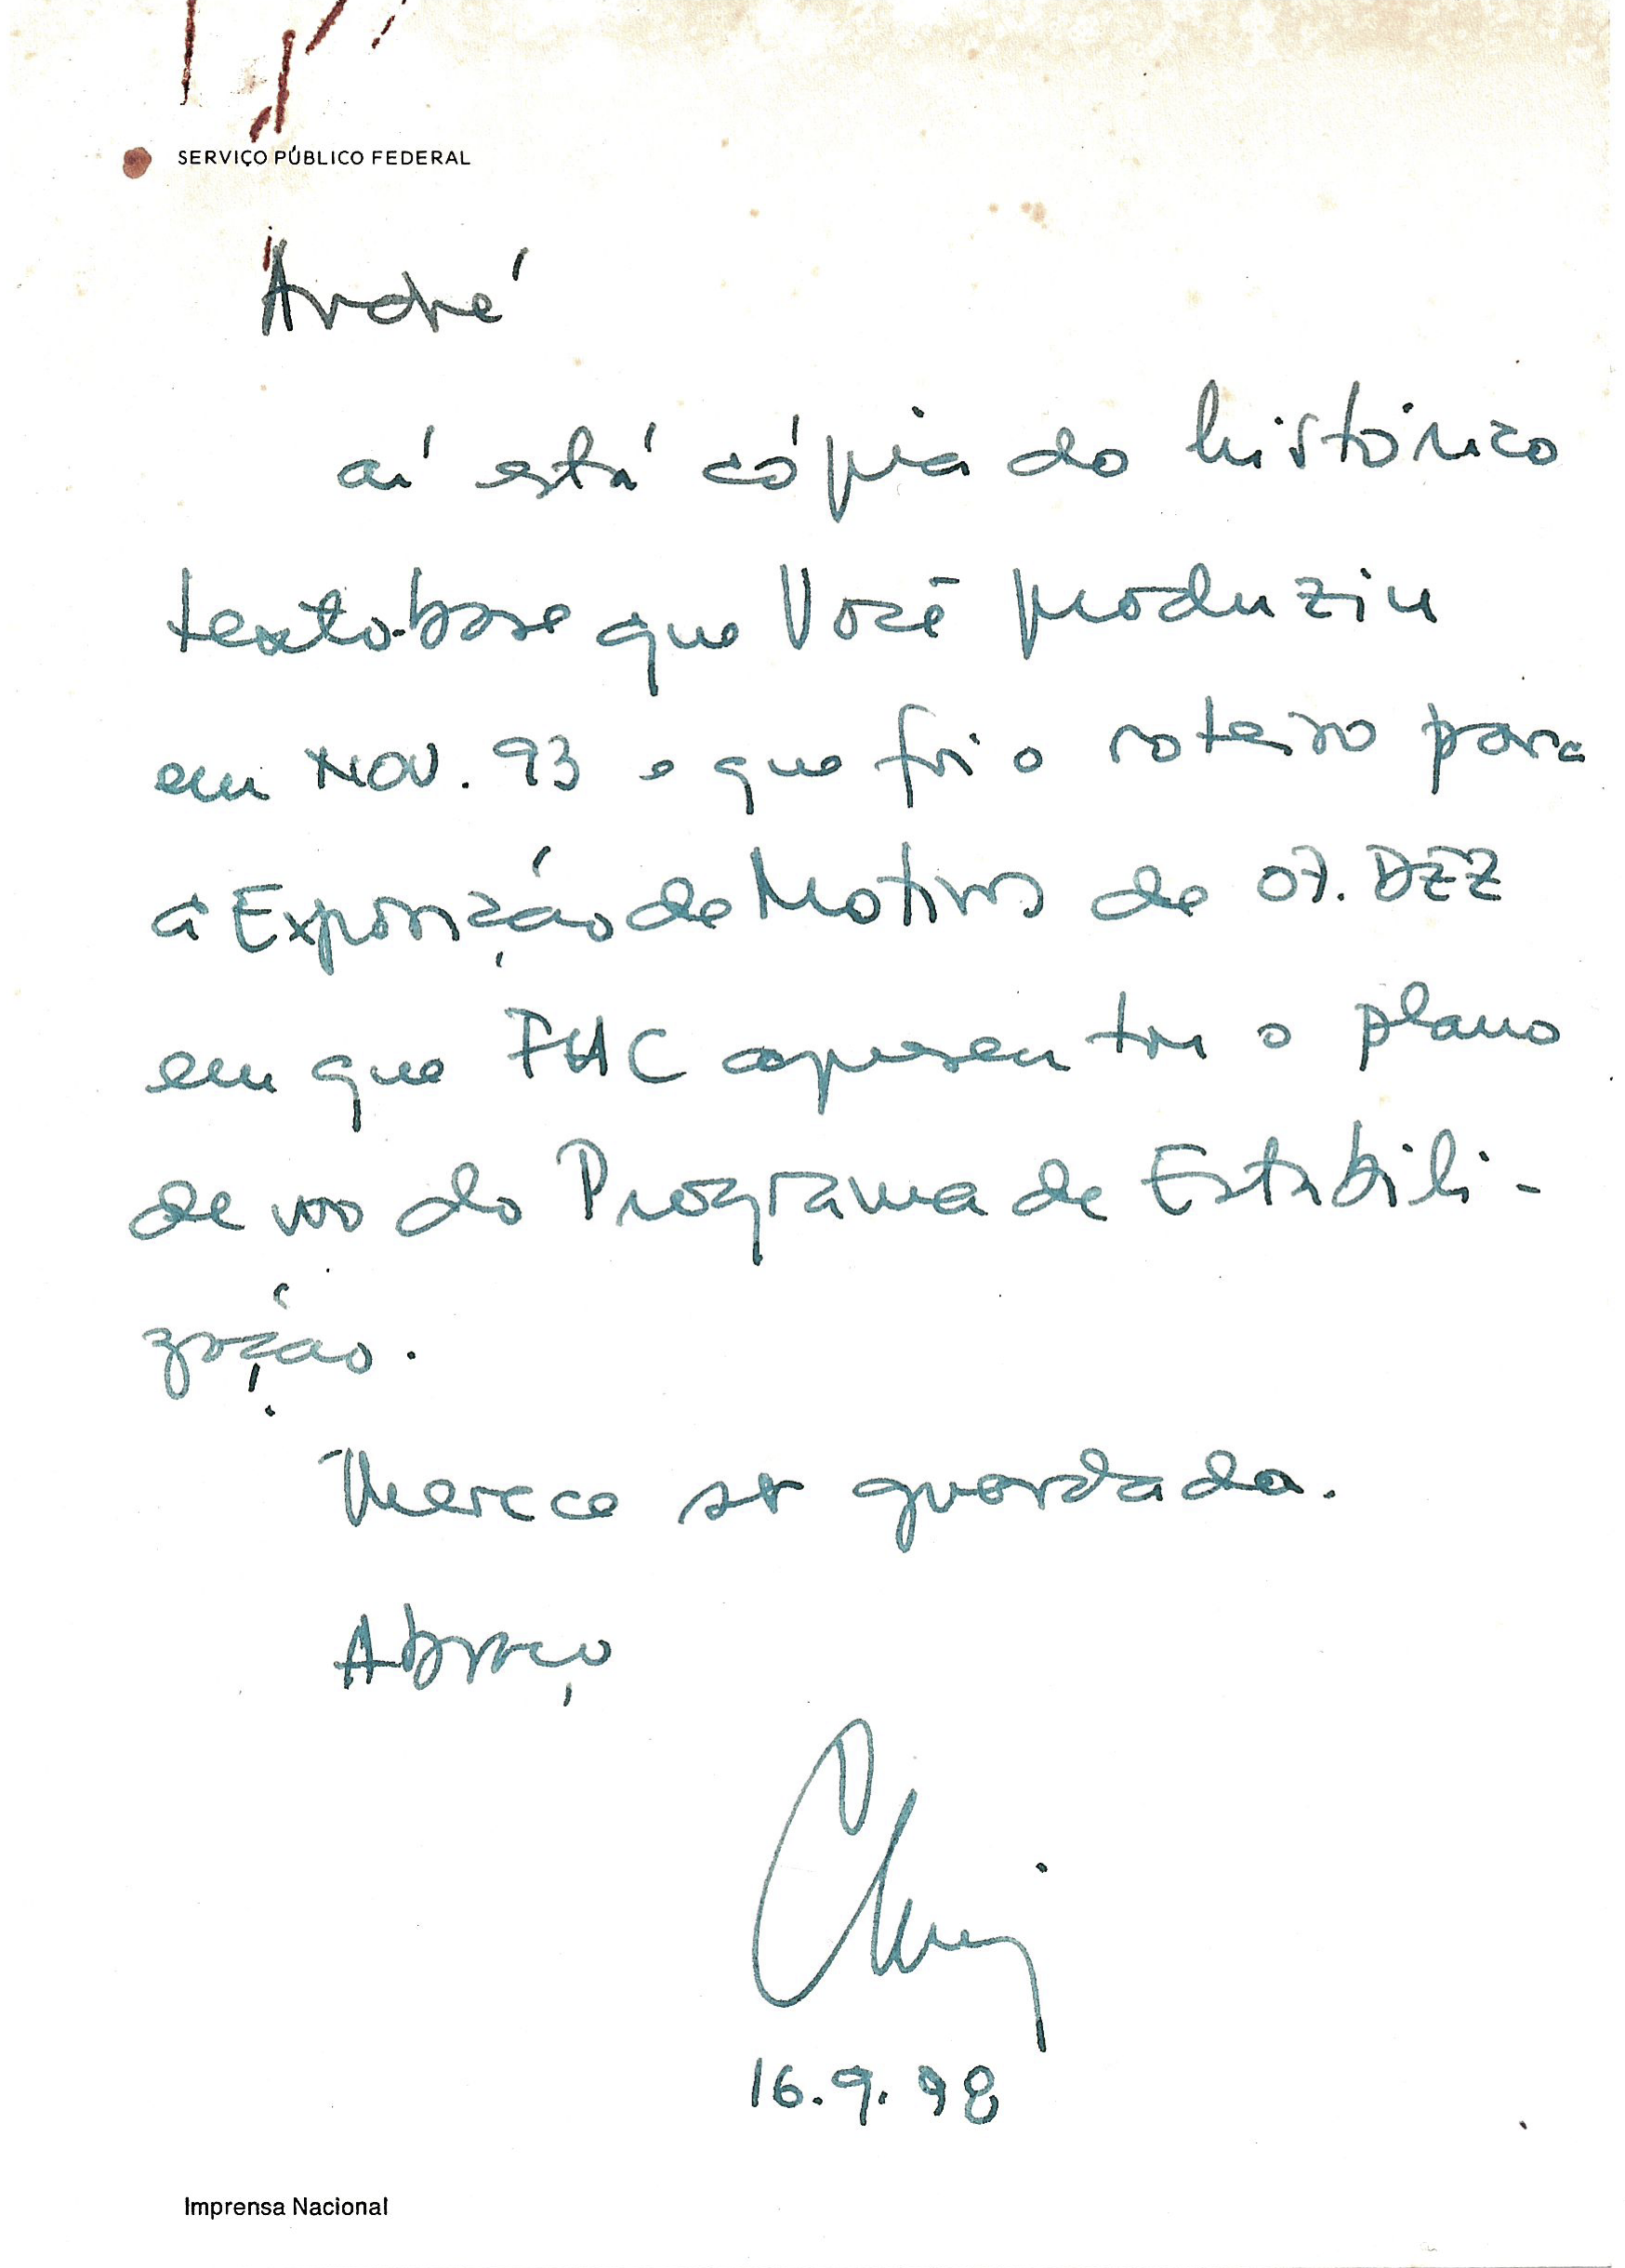 SERVIÇO PÚBLICO FEDERAL
André
aí está cópia do histórico
texto-base que Você produziu
em NOV. 93 e que foi o roteiro para
a Exposição de Motivos de 07. DEZ
em que FHC apresentou o plano
de voo do Programa de Estabili-
zação.
Merece ser guardada.
Abraço
16.9.98
Imprensa Nacional